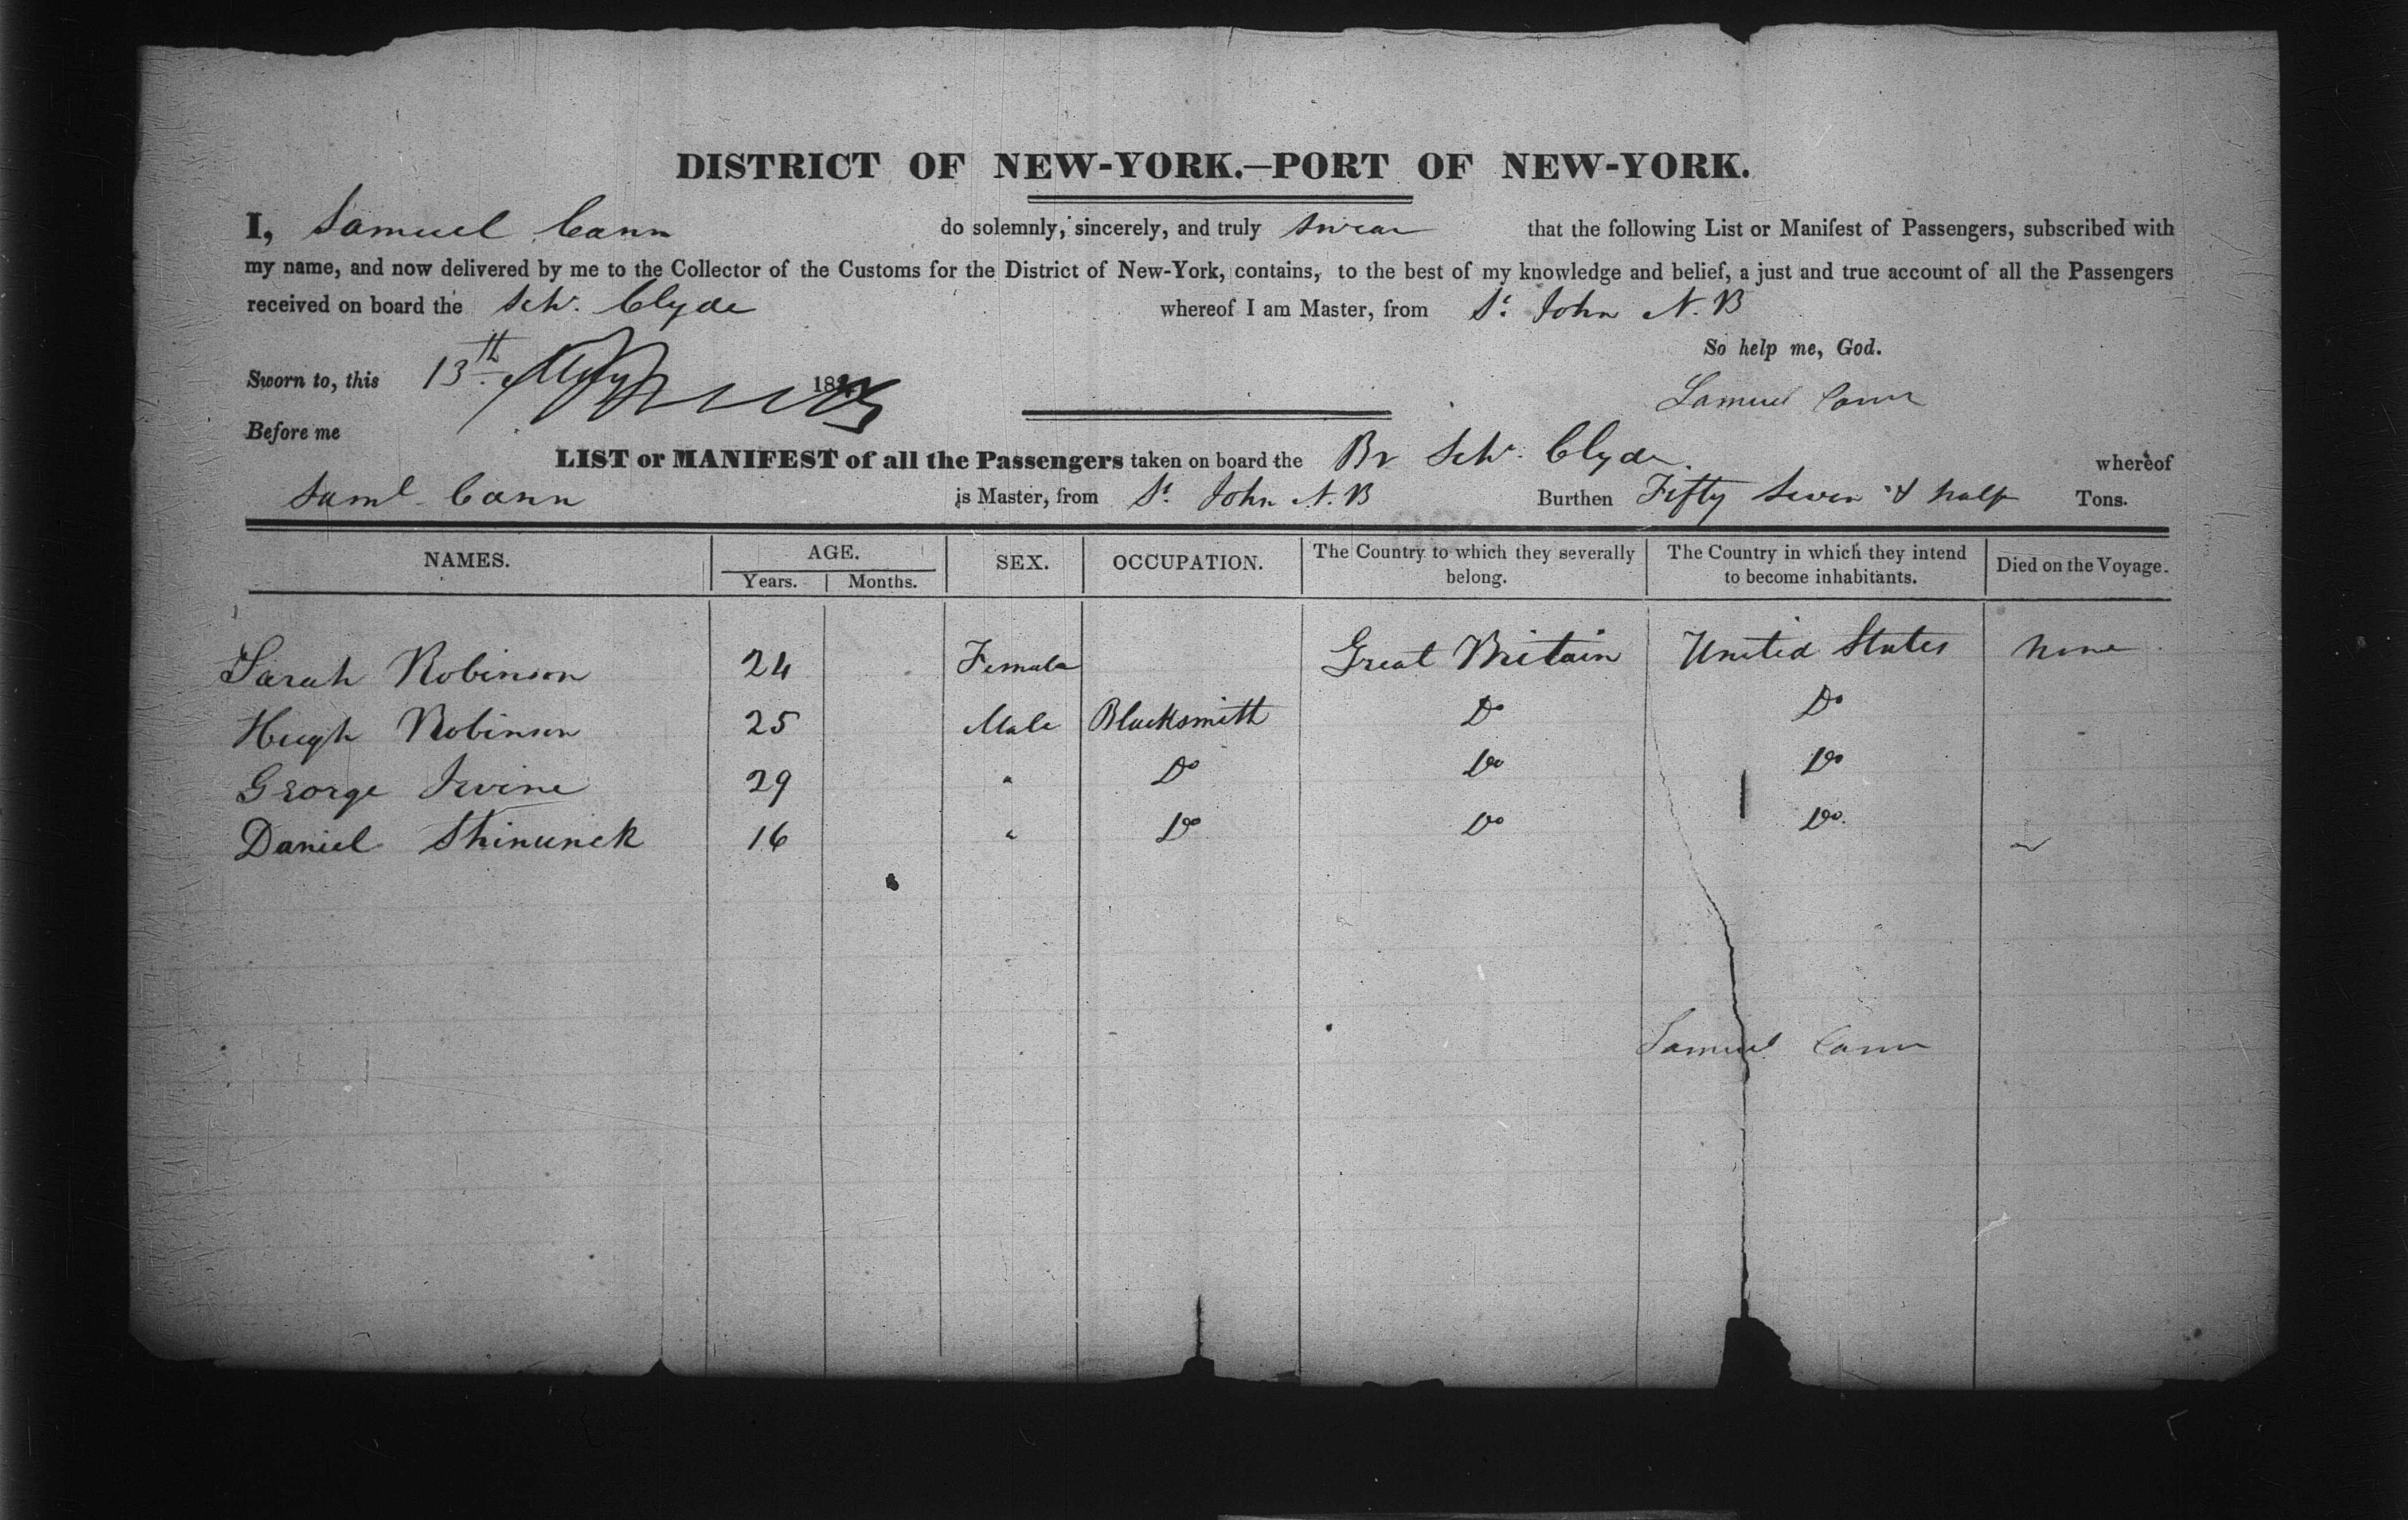 DISTRICT OF NEW-YORK.—PORT OF NEW-YORK.
I, Samuel Cann do solemnly, sincerely, and truly swear that the following List or Manifest of Passengers, subscribed with
my name, and now delivered by me to the Collector of the Customs for the District of New-York, contains, to the best of my knowledge and belief, a just and true account of all the Passengers
received on board the Schr. Clyde whereof I am Master, from St. John N. B
So help me, God.
Sworn to, this 13th 18
Samuel Cann
Before me
LIST or MANIFEST of all the Passengers taken on board the Br Schr. Clyde. whereof
Saml Cann is Master, from St. John N. B Burthen Fifty Seven & half Tons.
NAMES. AGE. SEX. OCCUPATION. The Country to which they severally belong. The Country in which they intend to become inhabitants. Died on the Voyage.
Years. Months.
Sarah Robinson 24 Female Great Britain United States None
Hugh Robinson 25 Male Blacksmith Do Do
George Irvine 29 " Do Do Do
Daniel Shinunck 16 " Do Do Do.
Samuel Cann